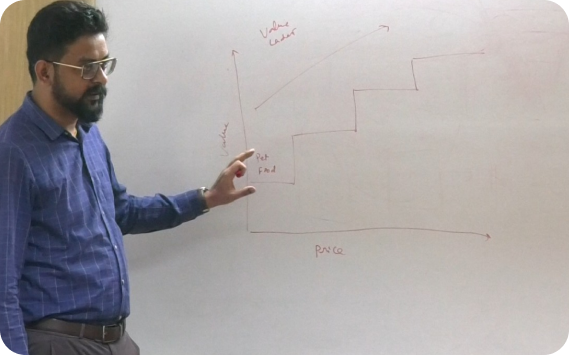 Value
Lader
Value
Pet
Food
Price